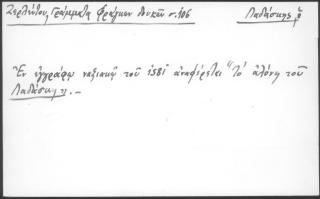 Ζερλέντου, Γράμματα Φράγκων δουκῶν σ. 106
Λαδάσκης
Ἐν ἐγγράφῳ ναξιακῷ τοῦ 1581 ἀναφέρεται "Τὸ ἁλόνι τοῦ
Λαδάσκη". —